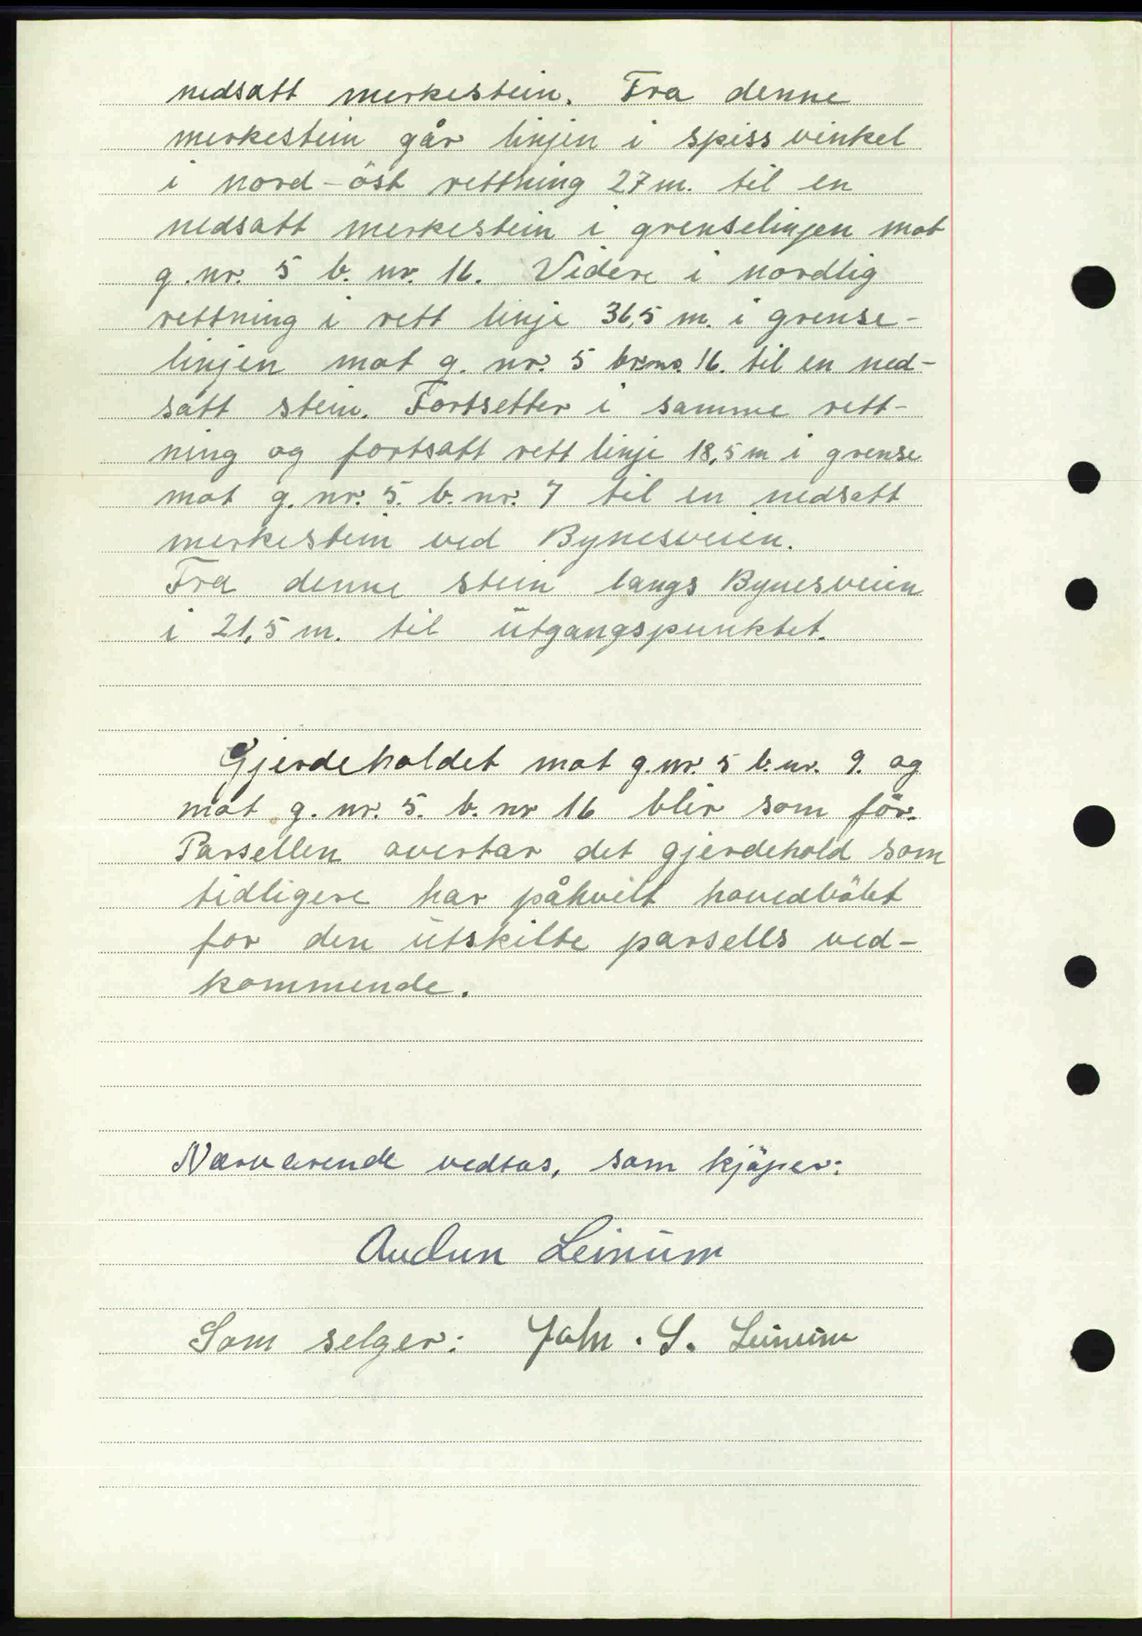 nedsatt merkestein. Fra denne
merkestein går linjen i spiss vinkel
i nord-öst rettning 27 m. til en
nedsatt merkestein i grenselinjen mot
g.nr. 5 b. nr. 16. Videre i nordlig
rettning i rett linje 36,5 m. i grense-
linjen mot g. nr. 5 br.nr. 16. til en ned-
satt stein. Fortsetter i samme rett-
ning og fortsatt rett linje 18,5 m i grense
mot g. nr. 5. b. nr. 7 til en nedsatt
merkestein ved Bynesveien.
Fra denne stein langs Bynesveien
i 21,5 m. til utgangspunktet.
Gjerdeholdet mot g.nr. 5 b.nr. 9. og
mot g. nr. 5. b. nr 16 blir som för.
Parsellen overtar det gjerdehold som
tidligere har påhvilt hovedbölet
for den utskilte parsells ved-
kommende.
Nærværende vedtas, som kjöper:
Audun Leinum
Som selger: John. S. Leinum